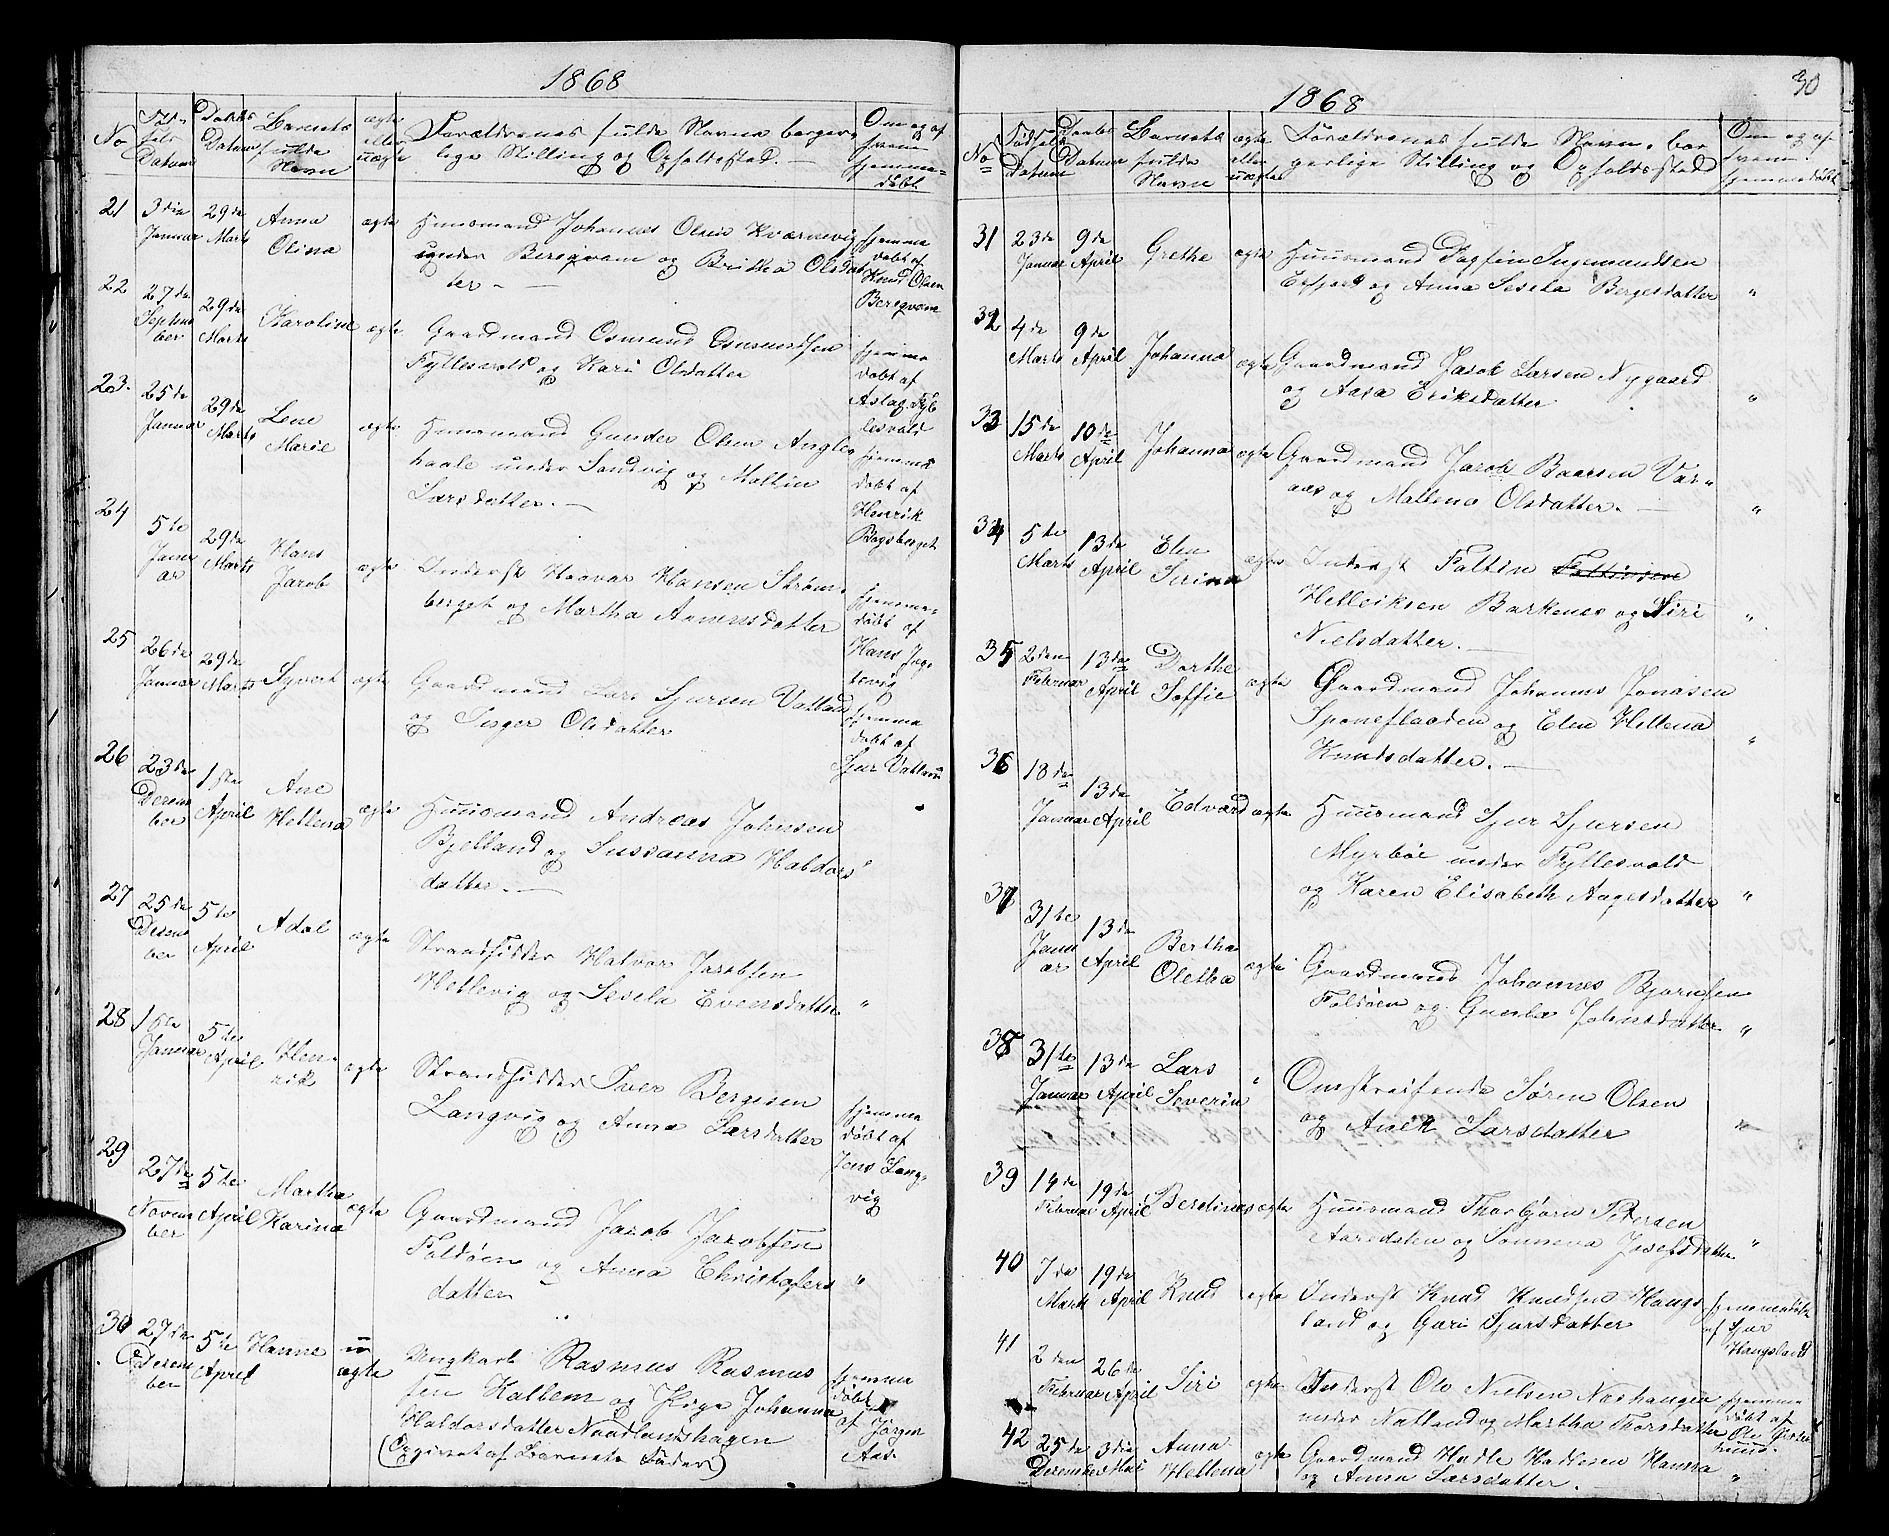 1868
No
Fød-
sels
Datum
Daabs
Datum
Barnets
fulde
Navn
ægte
eller
uægte
Forældrenes fulde Navn borger-
lige Stilling og Opholdssted. —
Om og af
hvem
hjemme-
døbt
21
3die
Januar
29de
Marts
Anna
Olina
ægte
Huusmand Johannes Olsen Kværnevig
under Bergqvam og Britha Olsdat
ter. —
hjemme
døbt af
Knud Olsen
Bergqvam
22
27de
Septem
ber
29de
Marts
Karoline
ægte
Gaardmand Osmund Osmundsen
Fyllesvold og Kari Olsdatter
hjemme
døbt af
Aslag Fyl
lesvold
23.
25de
Januar
29de
Marts
Lene
Marie
ægte
Huusmand Gunder Olsen Angle
haale under Sandvig og Mallin
Larsdatter. —
hjemme
døbt af
Henrik
Bogsberget
24
5te
Janu
ar
29de
Marts
Hans
Jacob
ægte
Inderst Haavar Hansen Strøm-
berget og Martha Amunsdatter
hjemme-
døbt af
Hans Inge
tevig
25
26de
Januar
29de
Marts
Syvert
ægte
Gaardmand Lars Sjursen Vatland
og Inger Olsdatter
hjemme
døbt af
Sjur Vatland
26
23de
Decem
ber
1ste
April
Ane
Hellena
ægte
Huusmand Andreas Johnsen
Bjelland og Sussanna Haldors
datter. —
"
27
25de
Decem
ber
5te
April
Adal
ægte
Strandsidder Halvor Jacobsen
Hellevig og Sesela Evensdatter
"
28
16de
Januar
5te
April
Hen-
rik
ægte
Strandsidder Iver Bergesen
Langvig og Anna Larsdatter
hjemme
døbt af
Jens Lang-
vig
29
27de
Novem
ber
5te
April
Martha
Karina
ægte
Gaardmand Jacob Jacobsen
Foldøen og Anna Christofers
datter
"
30
27de
Decem
ber
5te
April
Hanne
u
ægte
Ungkarl Rasmus Rasmus
sen Hallem og Pige Johanna
Haldorsdatter Naadlandshagen
(Opgivet af Barnets Fader)
hjemme
døbt
af Jørgen
Aas.
30
1868
No
Fødsels
Datum
Daabs
Datum
Barnets
fulde
Navn
ægte
eller
uægte
Forældrenes fulde Navn, bor
gerlige Stilling og Opholdssted
Om og af
hvem
hjemmedøbt
31
23de
Januar
9de
April
Grethe
ægte
Huusmand Dagfin Ingemundsen
Erfjord og Anna Sesela Bergesdatter
"
32
4de
Marts
9de
April
Johanna
ægte
Gaardmand Jacob Larsen Nygaard
og Aasa Eriksdatter
"
33
15de
Marts
10de
April
Johanna
ægte
Gaardmand Jacob Baarsen Var-
aas og Mallena Olsdatter. —
"
34
5te
Marts
13de
April
Elen
Sirina
ægte
Inderst Faltin Faltinsen
Helleiksen Barkenes og Siri
Nielsdatter. —
"
35
2den
Februar
13de
April
Dorthe
Soffie
ægte
Gaardmand Johannes Jonasen
Sponeflaaden og Elen Hellena
Knudsdatter. —
"
36
18de
Januar
13de
April
Edvard
ægte
Huusmand Sjur Sjursen
Myrbøe under Fyllesvold
og Karen Elisabeth Aagesdatter
"
37
31te
Janu
ar
13de
April
Bertha
Oletha
ægte
Gaardmand Johannes Bjørnsen
Foldøen og Gunla Johnsdatter
"
38
31te
Januar
13de
April
Lars
Severin
"
Omstreifende Søren Olsen
og Anek Larsdatter
"
39
14de
Februar
19de
April
Berdines
ægte
Huusmand Thorbjørn Petersen
Aaredsten og Sonneva Josefsdatter
"
40
7de
Marts
19de
April
Knud
ægte
Inderst Knud Knudsen Haugs
land og Guri Sjursdatter
hjemmedøbt
af Sjur
Haugsland
41
2den
Februar
26de
April
Siri
ægte
Inderst Ole Nielsen Nathaugen
under Natland og Martha Thorsdatter
hjemme
døbt af
Ole
42
25de
December
3die
Mai
Anna
Hellena
ægte
Gaardmand Hadle Hadlesen Hanna
og Anna Larsdatter. —
"